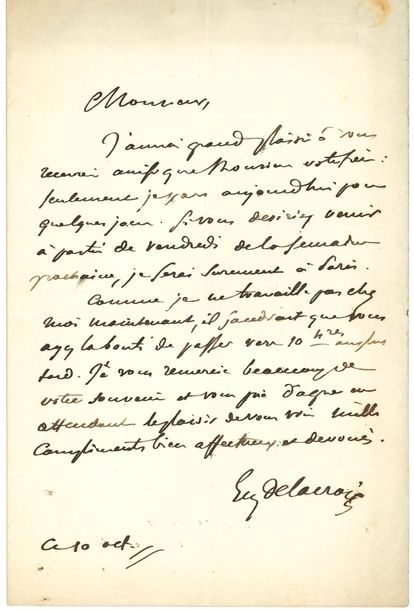 Monsieur,
J'aurai grand plaisir à vous
recevoir ainsi que Monsieur votre frère :
seulement je pars aujourd'hui pour
quelques jours. Si vous desiriez venir
à partir de vendredi de la semaine
prochaine, je serai surement à Paris.
Comme je ne travaille pas chez
moi maintenant, il faudrait que vous
ayez la bonté de passer vers 10 hres au plus
tard. Je vous remercie beaucoup de
votre souvenir et vous prie d'agréer en
attendant le plaisir de vous voir mille
compliments bien affectueux et devoués.
Eug Delacroix
Ce 10 oct.